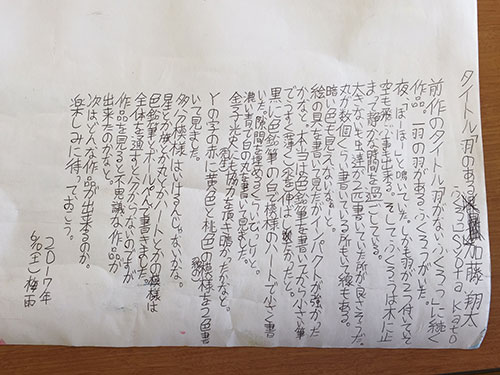 タイトル「羽のあるふくろう」Syota Kato 加藤 翔太
前作のタイトル「羽がないふくろう」に続く
作品。一羽の羽があるふくろうがいた。
夜、「ほーほー」と鳴いていた。しかも羽が2つ付いていて
空も飛ぶ事も出来る。そして、ふくろうは木に止
まって静かな時間を過ごしている。
太さない虫達が2匹書いていた所が良さそうだ。
丸が数個くらい書いている所もいく線もある。
暗い色も見えないなーと。
絵の具を書いて見たがインパクトが強かった
かなと。本当は色鉛筆を書いてから小さい筆
でうすく(薄く)
黒い色鉛筆の白で模様のハートで小さく書
いた。隙間を埋めるくらいびっしりと。
濃い青で白の水玉模様を書いて
金子光史 協力を頂き暗かったかなと。
Yの字の赤に黄色と桃色の模様を2色書
いて見ました。
多くて模様はいけるんじゃないかな。
星とか線とか丸とかハートとかの模様は
色鉛筆とボールペンで書きました。
全体を通すと欠からないのですが
作品を見ると不思議な作品が
出来たのかなと。
次はどんな作品が出来るのか。
楽しみに待っておこう。
2017年
梅雨